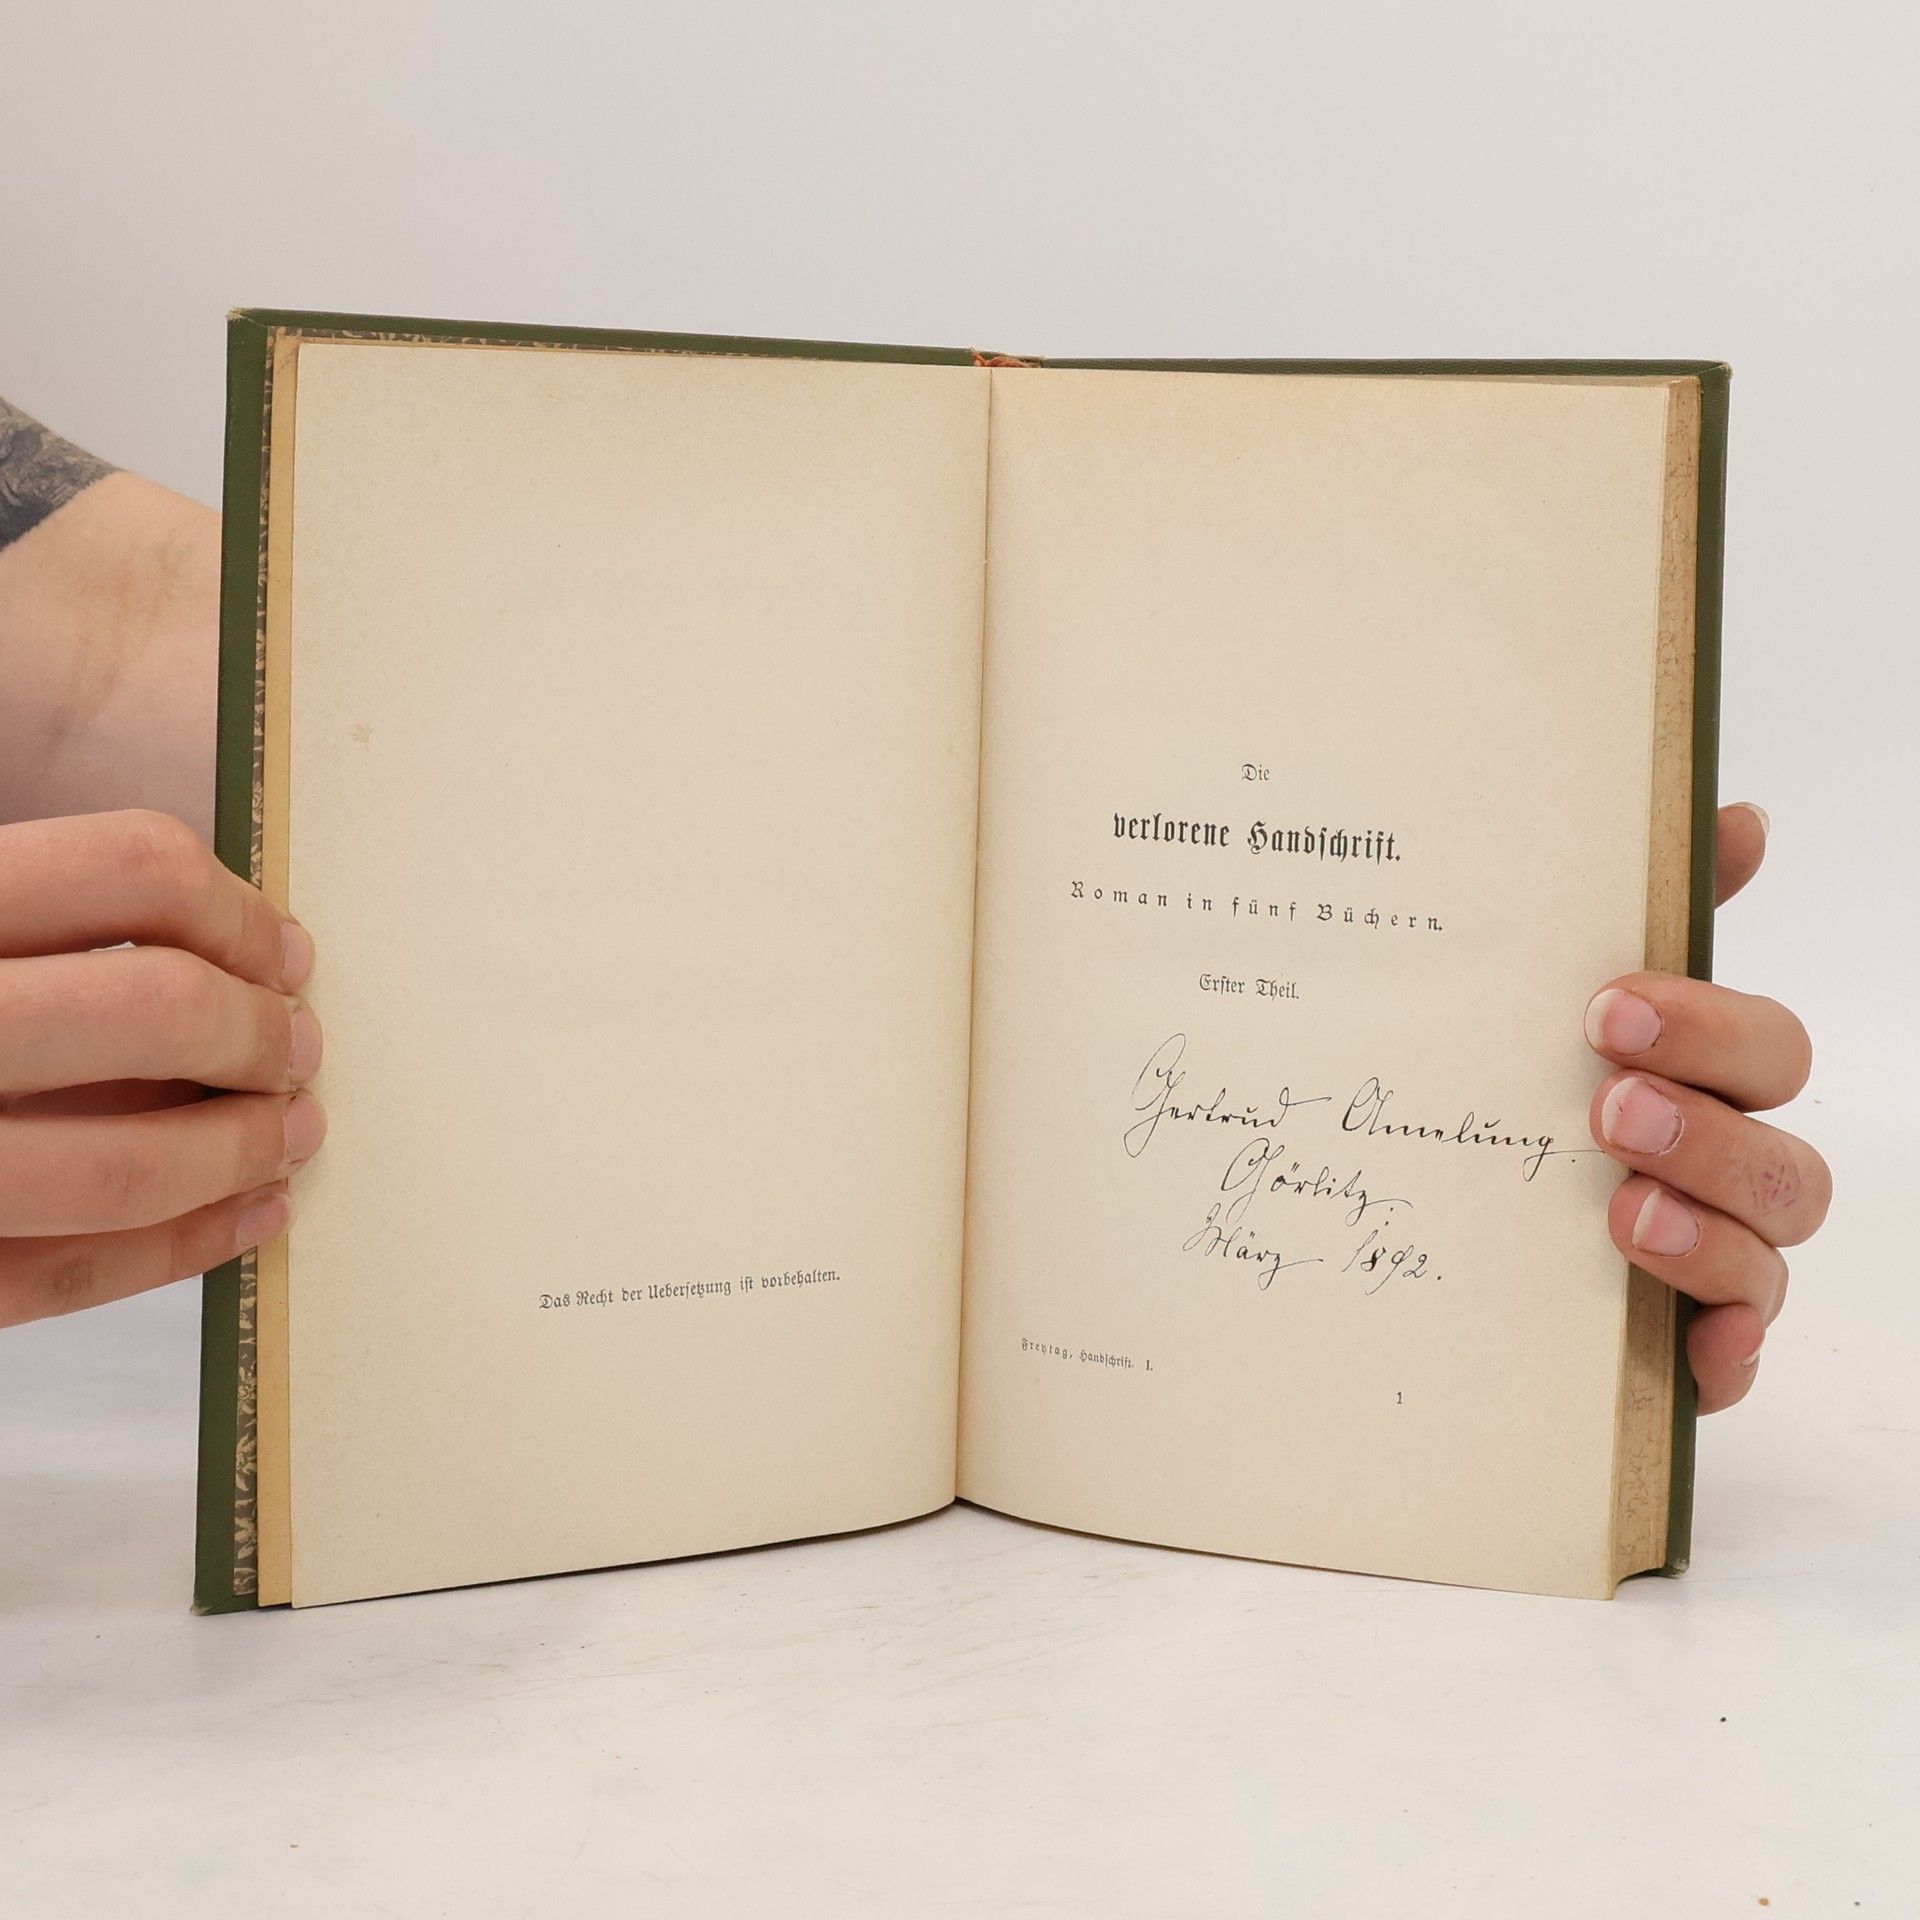 Das Recht der Uebersetzung ist vorbehalten.
Die
verlorene Handschrift.
Roman in fünf Büchern.
Erster Theil.
Gertrud Amelung.
Görlitz.
März 1892.
Freytag, Handschrift. I.
1